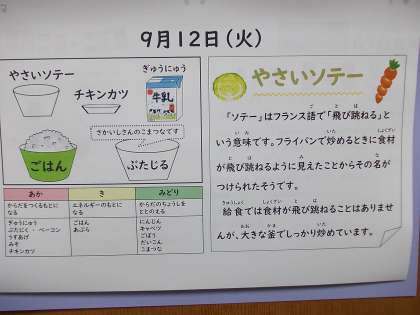 9月12日(火)
やさいソテー
ぎゅうにゅう
牛乳
チキンカツ
さかいしさんのこまつなです
ごはん
ぶたじる
あか
き
みどり
からだをつくるもとに
なる
エネルギーのもとに
なる
からだのちょうしを
ととのえる
ぎゅうにゅう
ぶたにく・ベーコン
うすあげ
みそ
チキンカツ
ごはん
あぶら
にんじん
キャベツ
ごぼう
だいこん
こまつな
やさいソテー
「ソテー」はフランス語で「飛び跳ねる」と
いう意味です。フライパンで炒めるときに食材
が飛び跳ねるように見えたことからその名が
つけられたそうです。
給食では食材が飛び跳ねることはありませ
んが、大きな釜でしっかり炒めています。